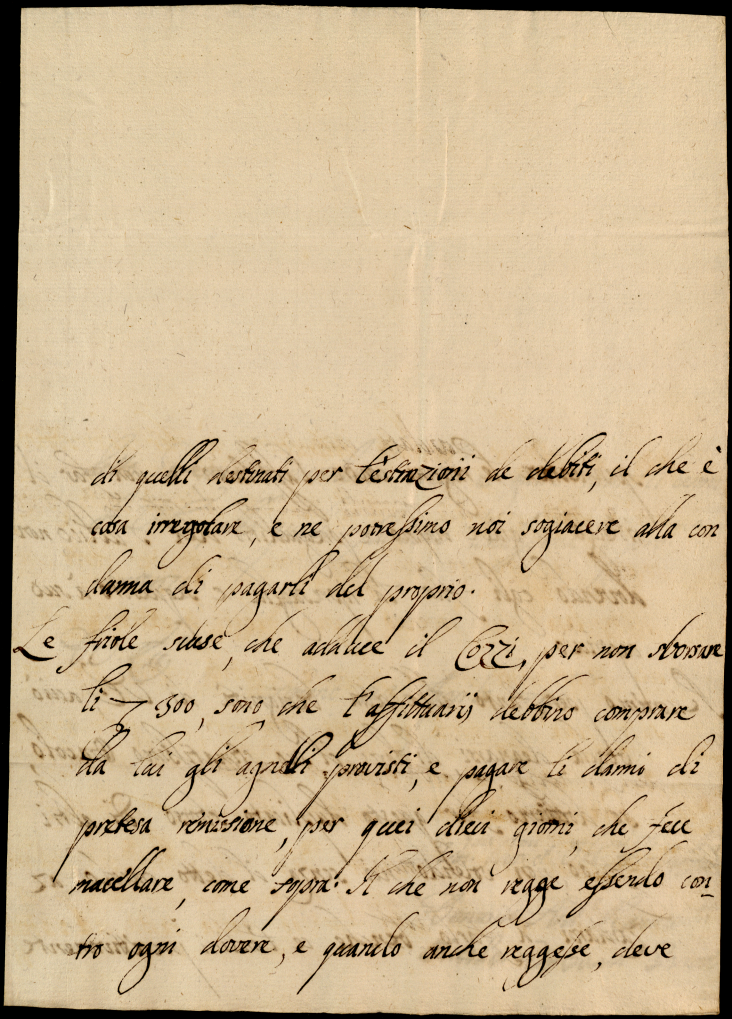 di quelli destinati per l'estinzioni de debiti, il che è
cosa irregolare, e ne potressimo noi sogiacere alla con
danna di pagarli del proprio.
Le friole scuse, che adduce il Cozzi, per non sborsare
li 300, sono che l'affittuarij debbino comprare
da lui gli agnelli provisti, e pagare li danni di
pretesa remissione, per quei dieci giorni, che fece
macellare, come sopra. Il che non regge essendo con-
tro ogni dovere, e quando anche reggesse, deve